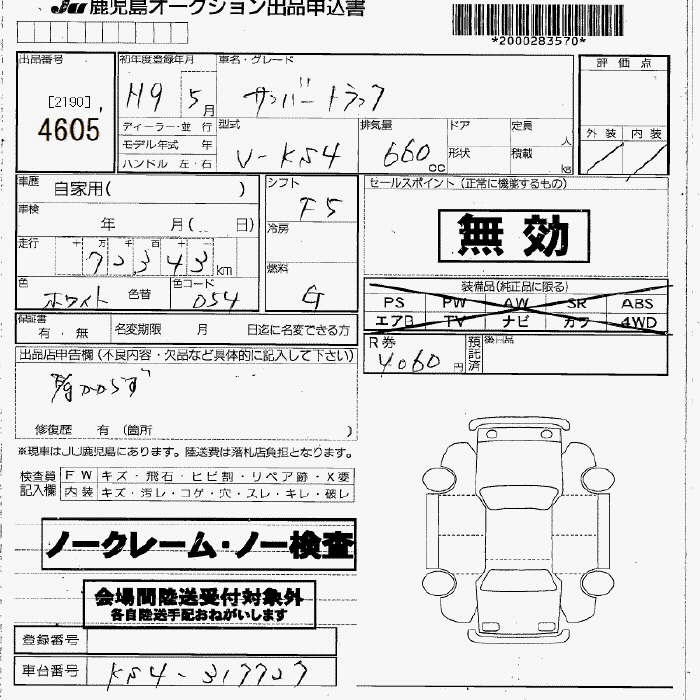 JU鹿児島オークション出品申込書
*2000283570*
出品番号
[2190]
4605
初年度登録年月
H9 5月
車名・グレード
サンバートラック
評価点
外装 内装
ディーラー・並行
モデル年式 年
ハンドル 左・右
型式
V-KS4
排気量
660cc
ドア
形状
定員
人
積載
kg
車歴 自家用( )
車検
年 月( 日)
走行 十 万 千 百 十 一
72,343 km
色
ホワイト 色替
色コード
054
シフト
F5
冷房
燃料
G
セールスポイント (正常に機能するもの)
無効
装備品(純正品に限る)
PS PW AW SR ABS
エアB TV ナビ カワ 4WD
保証書
有・無 名変期限 月 日迄に名変できる方
R券
4060円
預託済
後日品
出品店申告欄 (不良内容・欠品など具体的に記入して下さい)
修復歴 有 (箇所 )
※現車はJU鹿児島にあります。陸送費は落札店負担となります。
検査員記入欄
FW キズ・飛石・ヒビ割・リペア跡・X要
内装 キズ・汚レ・コゲ・穴・スレ・キレ・破レ
ノークレーム・ノー検査
会場間陸送受付対象外
各自陸送手配おねがいします
登録番号
車台番号 KS4-317727